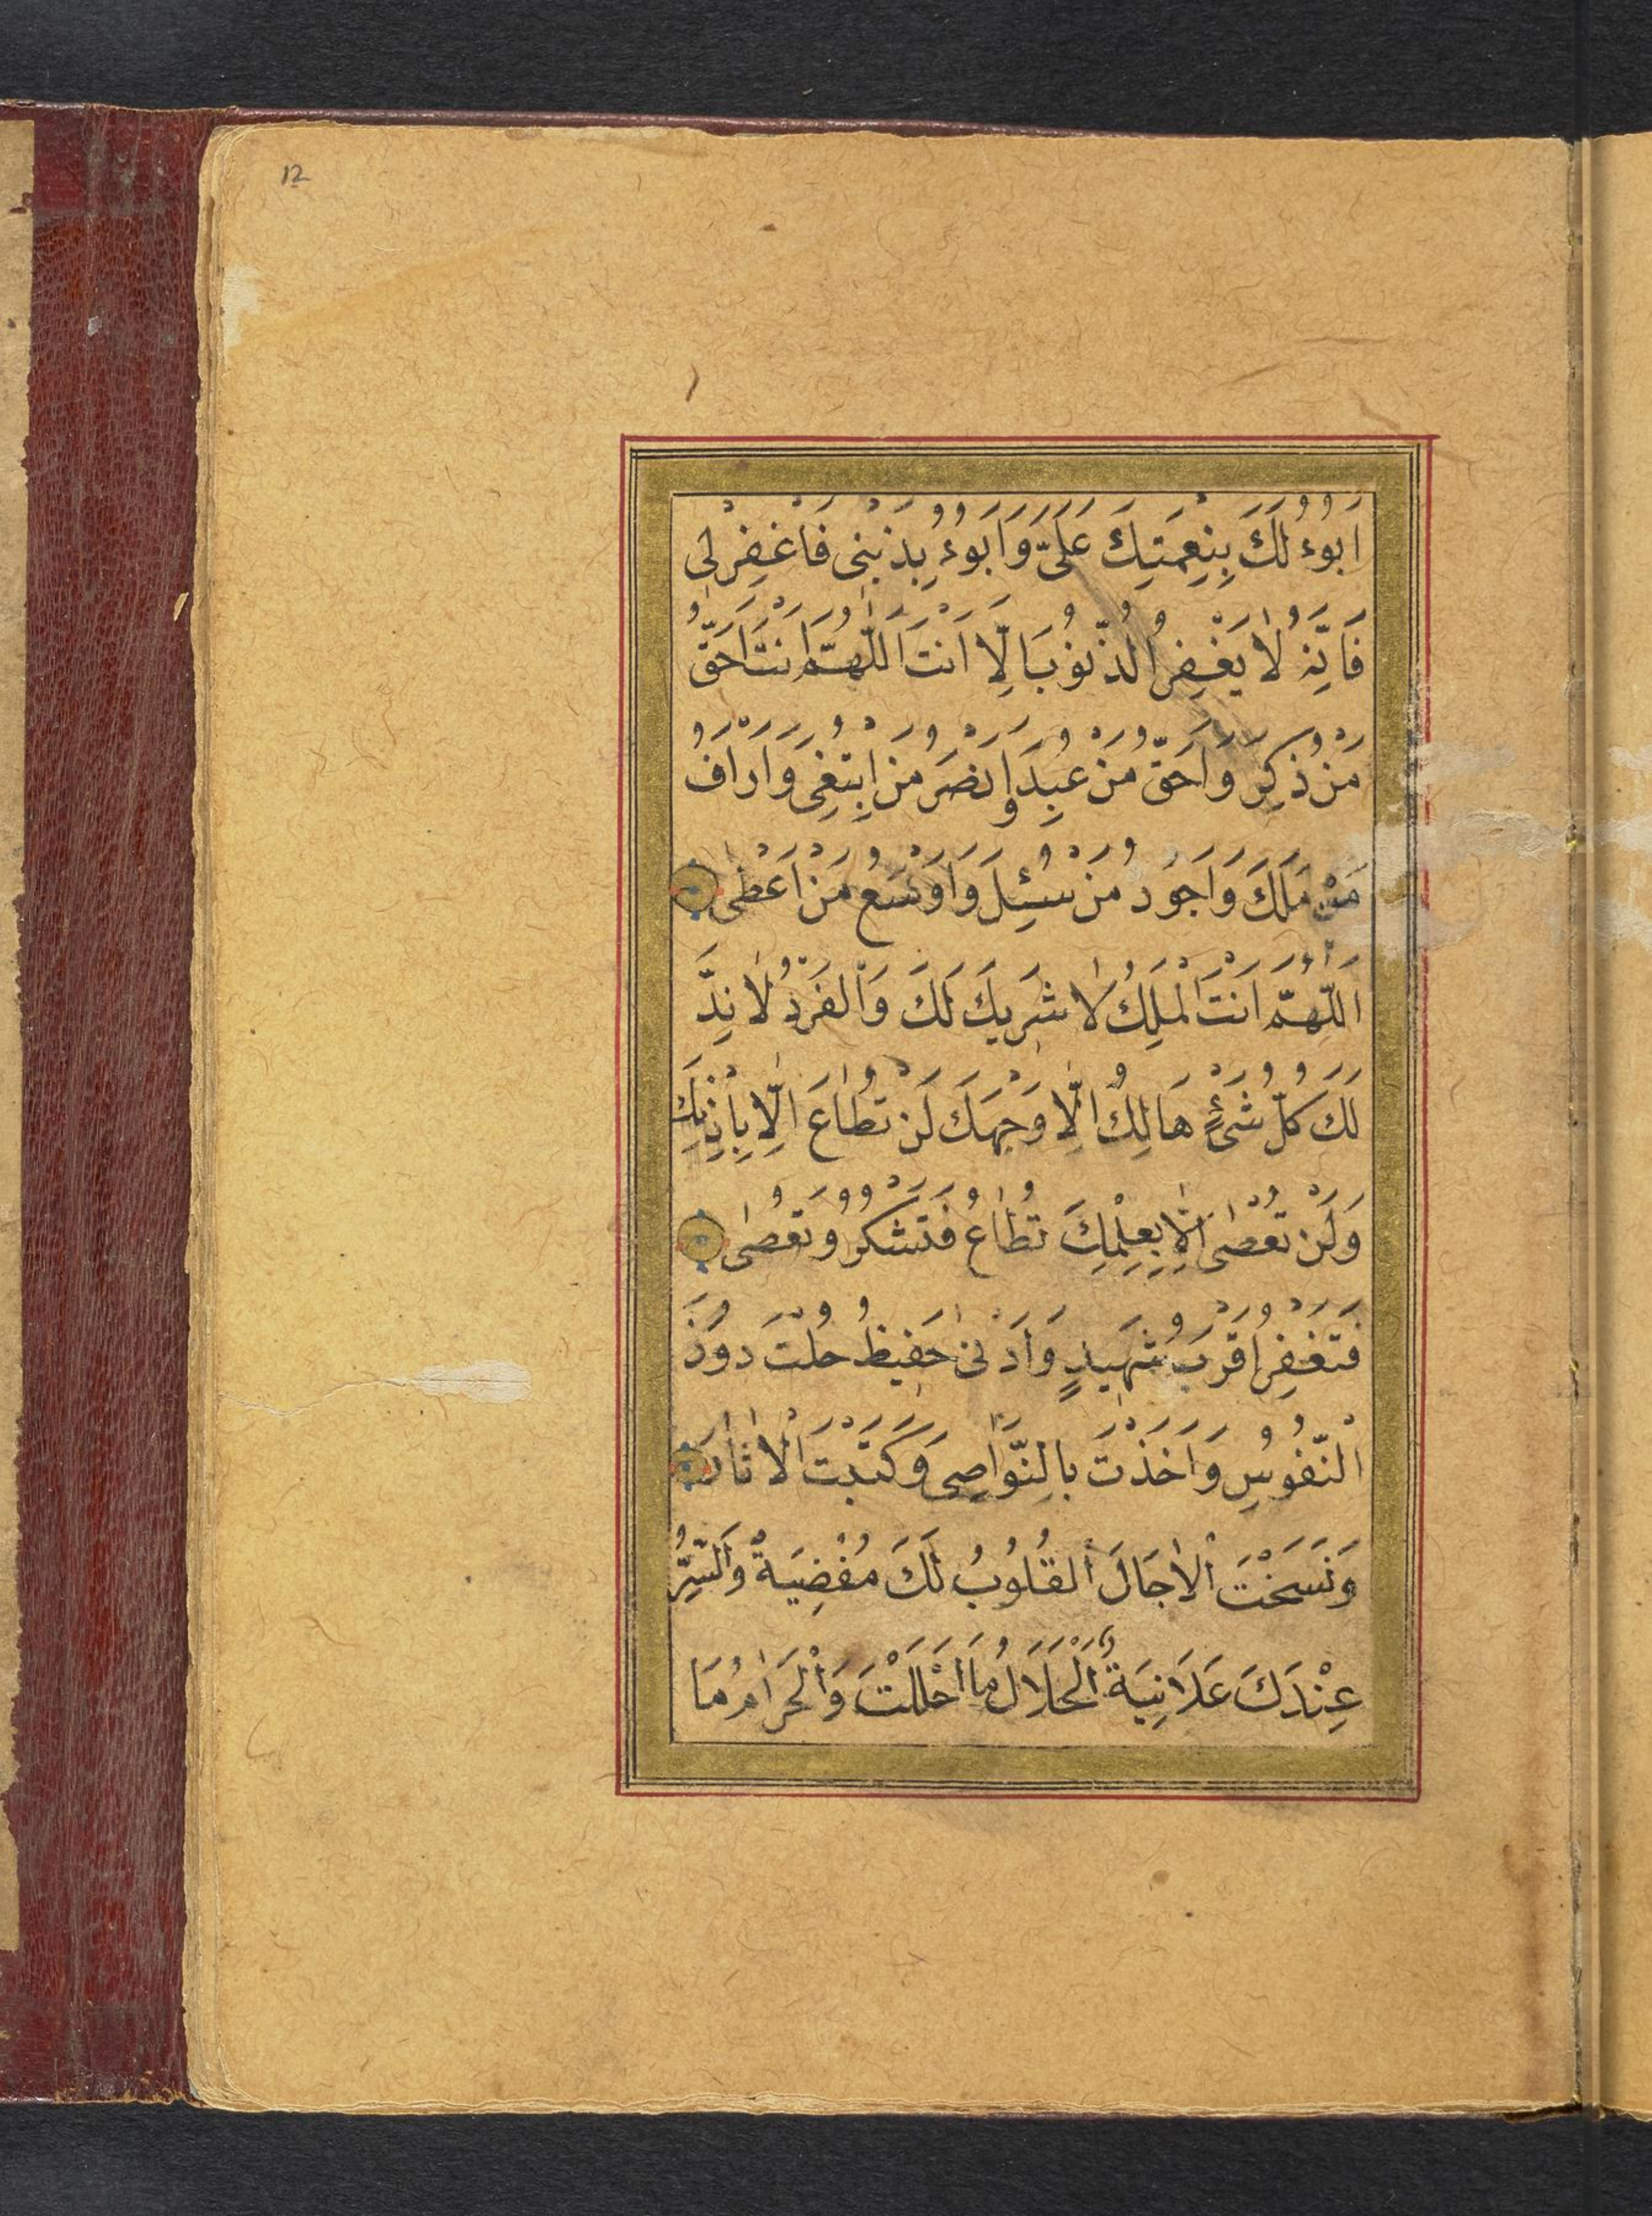 12
اَبُوءُ لَكَ بِنِعْمَتِكَ عَلَىَّ وَاَبُوءُ بِذَنْبِى فَاغْفِرْلِى
فَاِنَّهُ لَا يَغْفِرُ الذُّنُوبَ اِلَّا اَنْتَ اَللّٰهُمَّ اَنْتَ اَحَقُّ
مَنْ ذُكِرَ وَاَحَقُّ مَنْ عُبِدَ وَاَنْصَرُ مَنِ ابْتُغِىَ وَاَرْاَفُ
مَنْ مَلَكَ وَاَجْوَدُ مَنْ سُئِلَ وَاَوْسَعُ مَنْ اَعْطٰى
اَللّٰهُمَّ اَنْتَ الْمَلِكُ لَا شَرِيكَ لَكَ وَالْفَرْدُ لَا نِدَّ
لَكَ كُلُّ شَىْءٍ هَالِكٌ اِلَّا وَجْهَكَ لَنْ تُطَاعَ اِلَّا بِاِذْنِكَ
وَلَنْ تُعْصٰى اِلَّا بِعِلْمِكَ تُطَاعُ فَتَشْكُرُ وَتُعْصٰى
فَتَغْفِرُ اَقْرَبُ شَهِيدٍ وَاَدْنٰى حَفِيظٍ حُلْتَ دُونَ
النُّفُوسِ وَاَخَذْتَ بِالنَّوَاصِى وَكَتَبْتَ الْاٰثَارَ
وَنَسَخْتَ الْاٰجَالَ اَلْقُلُوبُ لَكَ مُفْضِيَةٌ وَالسِّرُّ
عِنْدَكَ عَلَانِيَةٌ اَلْحَلَالُ مَا اَحْلَلْتَ وَالْحَرَامُ مَا